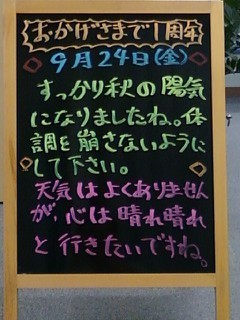 おかげさまで1周年
9月24日(金)
すっかり秋の陽気
になりましたね。体
調を崩さないように
して下さい。
天気はよくありません
が、心は晴れ晴れ
と行きたいですね。